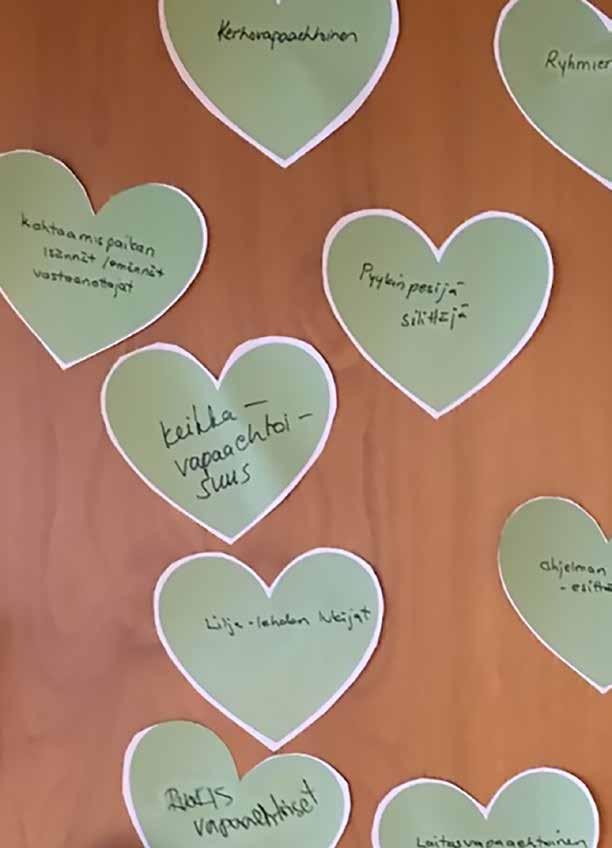 Kerhovapaaehtoinen
Ryhmien
Kohtaamispaikan
isännät / emännät
vastaanottajat
Pyykinpesijä
silittäjä
keikka -
vapaaehtoi -
suus
Lilja - lehden lukijat
ohjelman
- esittä
vapaaehtoiset
Laitosvapaaehtoinen